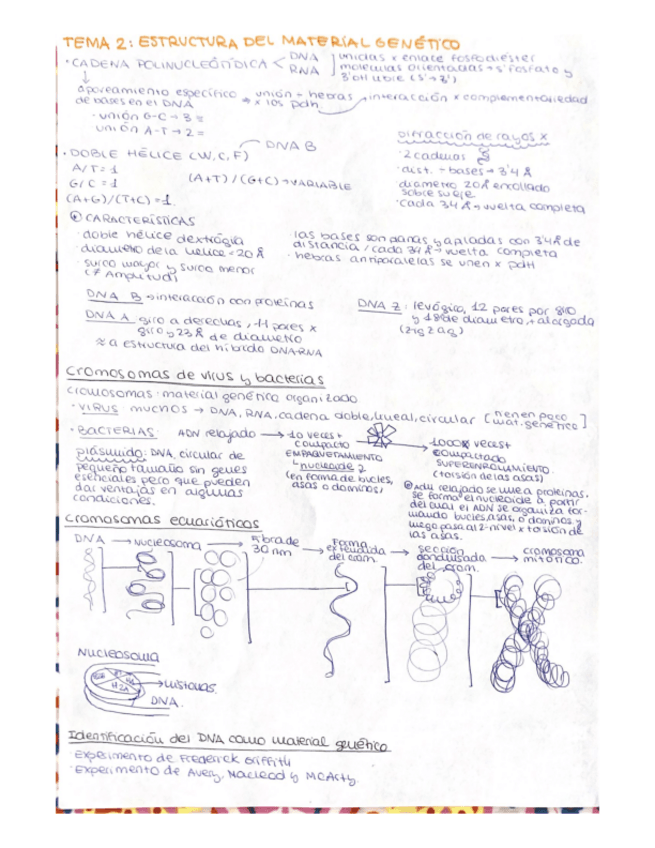 TEMA 2: ESTRUCTURA DEL MATERIAL GENÉTICO
· CADENA POLINUCLEÓTIDICA < DNA RNA ] unidas x enlace fosfodiéster
moléculas orientadas → 5' fosfato y
3'OH libre (5'→3')
↓
apareamiento específico
de bases en el DNA
unión ÷ hebras → interacción x complementariedad
→ x los pdh.
· unión G-C → 3 =
unión A-T → 2 =
· DOBLE HÉLICE (W, C, F)
DNA B
A/T = 1
G/C = 1
(A+G)/(T+C) = 1.
(A+T)/(G+C) → VARIABLE
Difracción de rayos X
· 2 cadenas
· dist. ÷ bases → 3'4 Å
diámetro 20 Å enrollado
sobre su eje
· cada 34 Å → vuelta completa
CARACTERÍSTICAS
· doble hélice dextrógira
· diámetro de la hélice = 20 Å
· surco mayor y surco menor
(≠ Amplitud)
las bases son planas y apiladas con 3'4 Å de
distancia / cada 34 Å → vuelta completa
· hebras antiparalelas se unen x pdH
DNA B → interacción con proteínas
DNA A: giro a derechas, 11 pares x
giro y 23 Å de diámetro
≈ a estructura del híbrido DNA-RNA
DNA Z: levógira, 12 pares por giro
y 18 de diámetro, + alargada
(zig zag)
Cromosomas de virus y bacterias
Cromosomas: material genético organizado
· VIRUS muchos → DNA, RNA, cadena doble, lineal, circular [tienen poco
mat. genético]
· BACTERIAS: ADN relajado → 10 veces +
compacto
EMPAQUETAMIENTO
nucleoide
(en forma de bucles,
asas o dominios)
→ 1000 veces +
compactado
SUPERENROLLAMIENTO
(torsión de las asas)
plásmido: DNA circular de
pequeño tamaño sin genes
esenciales pero que pueden
dar ventajas en algunas
condiciones.
ADN relajado se une a proteínas,
se forma el nucleoide a partir
del cual el ADN se organiza for-
mando bucles, asas, o dominios y
luego pasa al 2º nivel x torsión de
las asas.
Cromosomas eucarióticos
DNA → Nucleosoma → Fibra de
30 nm → Forma
extendida
del crom. → sección
condensada
del crom. → cromosoma
mitótico.
Nucleosoma
H2A
→ histonas.
DNA.
Identificación del DNA como material genético
· Experimento de Frederick Griffith
· Experimento de Avery, Macleod y McCarty